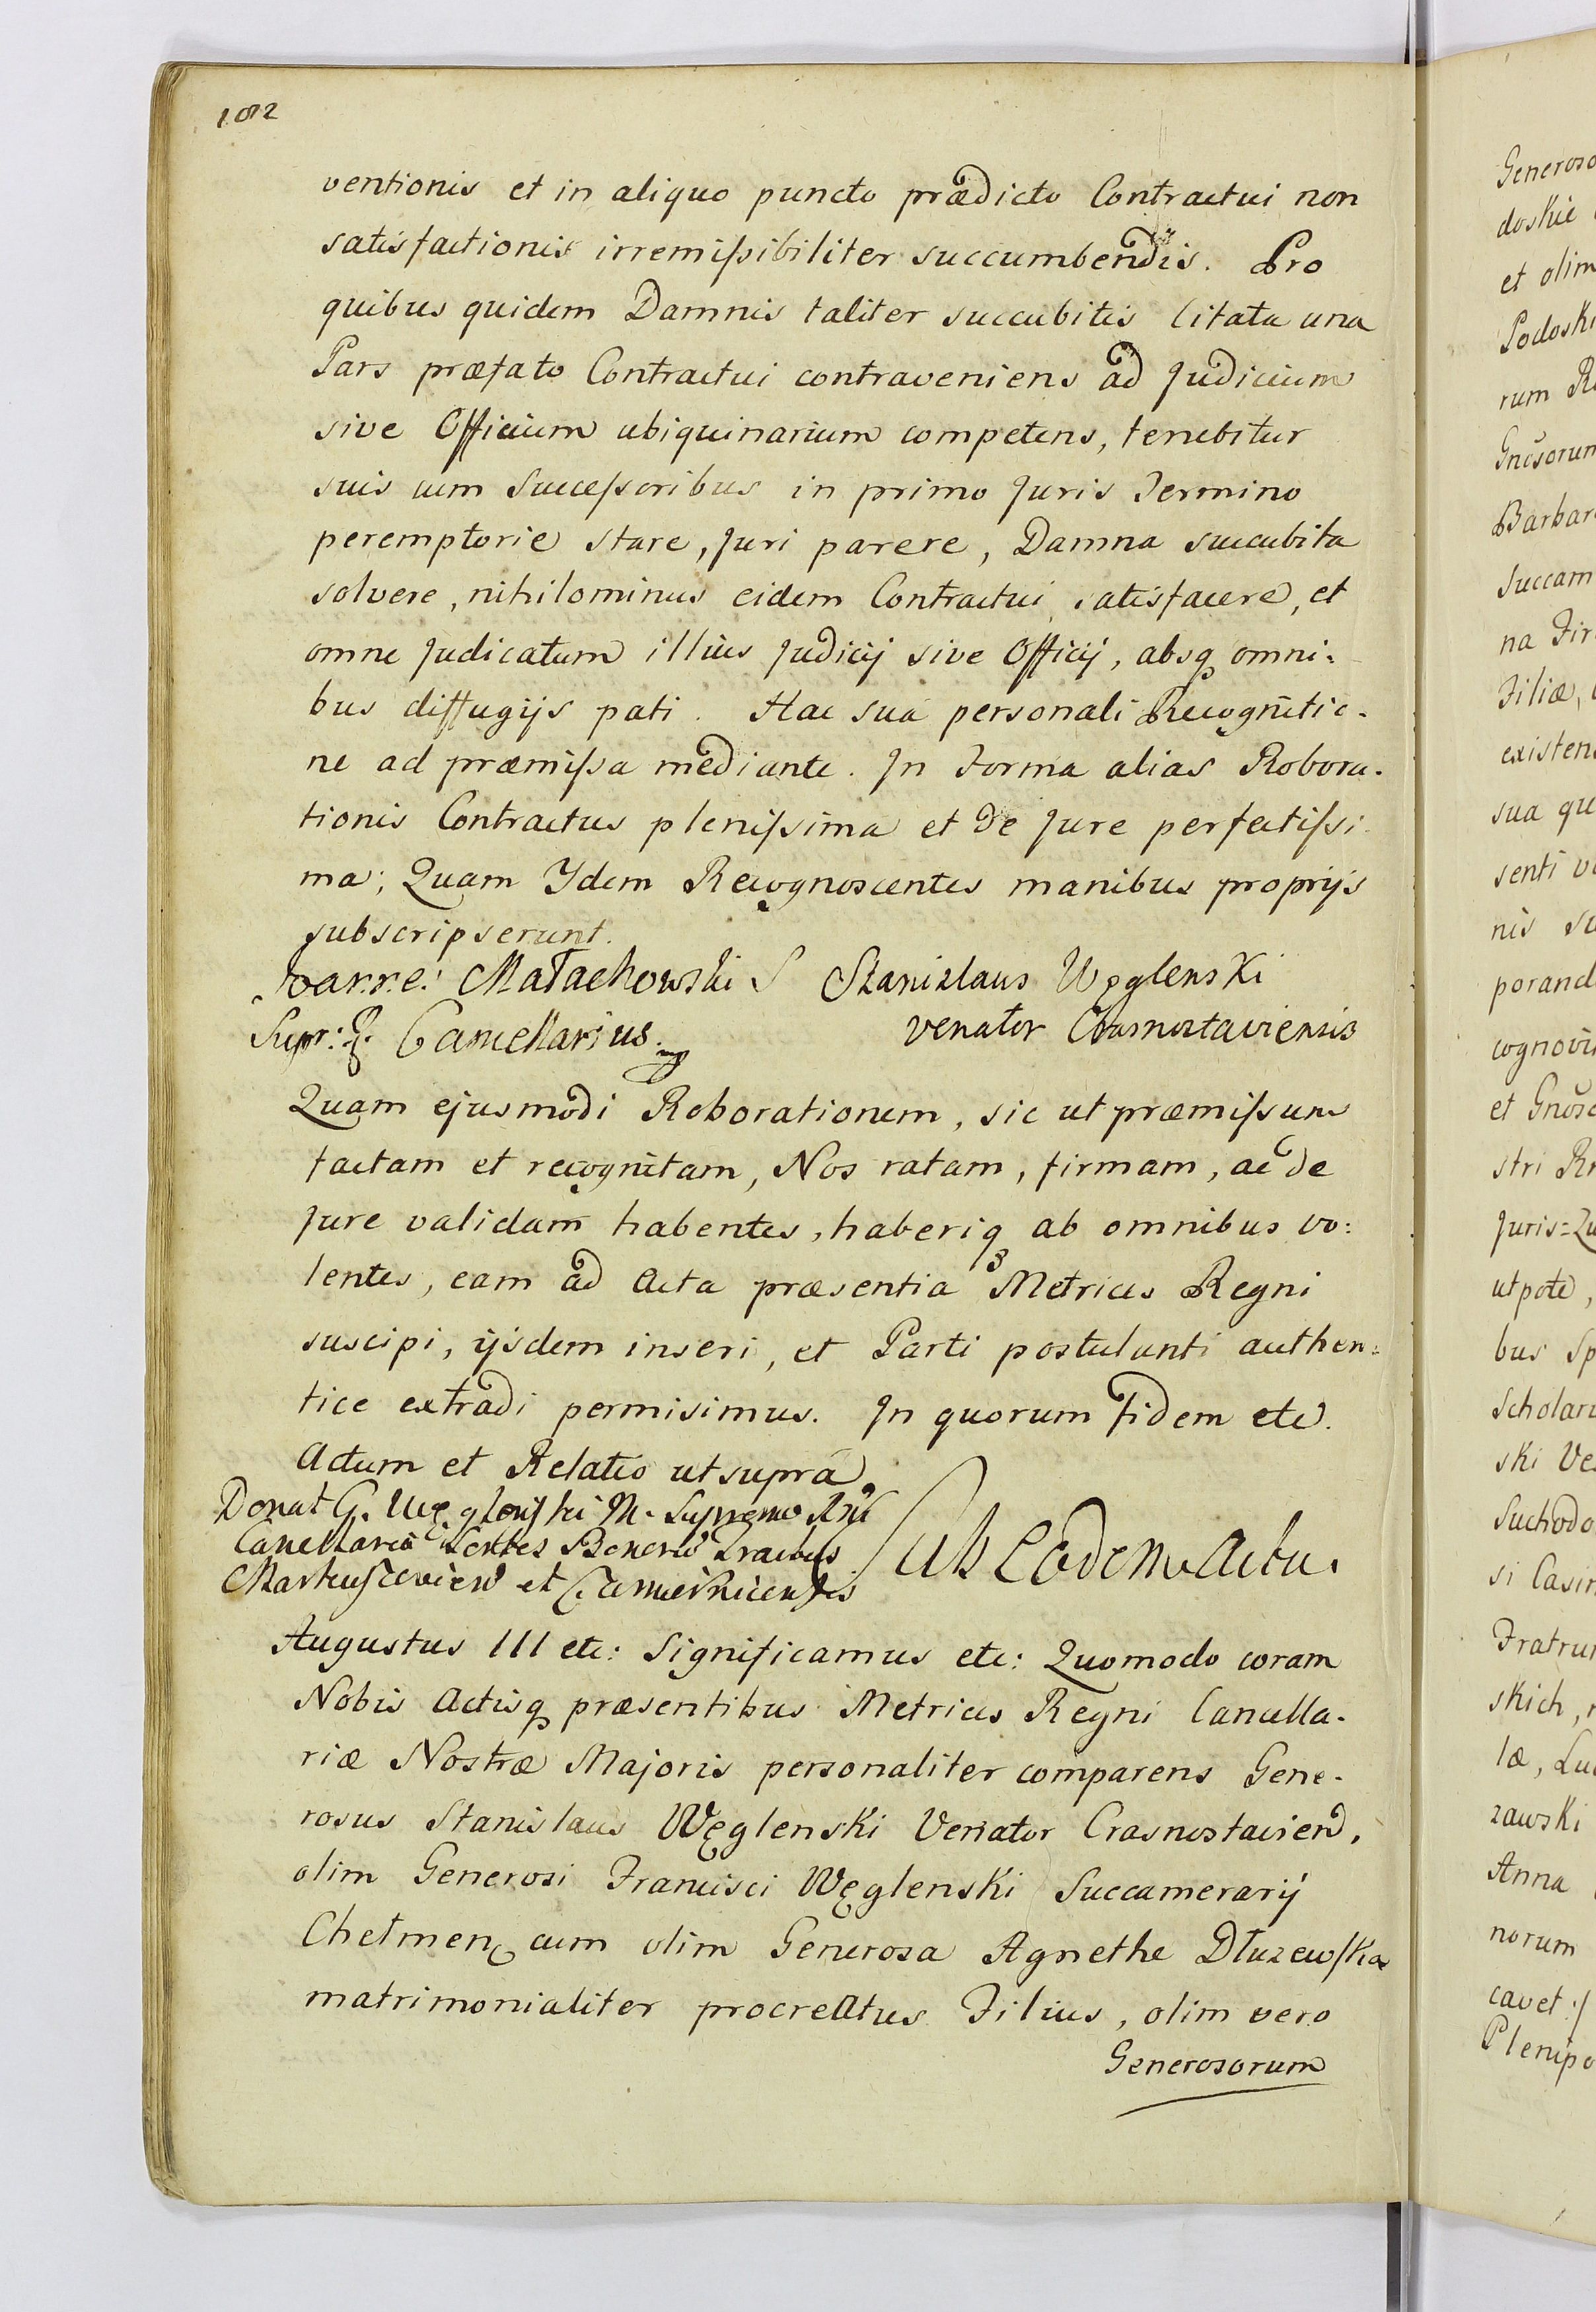 1012
ventionis et in aliquo puncto prædicto Contractui non
satisfactionis irremissibiliter succumbendis. Pro
quibus quidem Damnis taliter succubitis Citata una
Pars præfato Contractui contraveniens ad Judicium
sive Officium ubiquinarium competens, tenebitur
suis cum Successoribus in primo Juris Termino
peremptorie stare, Juri parere, Damna succubita
solvere, nihilominus eidem Contractui satisfacere, et
omne Judicatum illius Judicij sive Officij, absq omni-
bus diffugijs pati. Hac sua personali Recognitio-
ne ad præmissa mediante. In Forma alias Robora-
tionis Contractus plenissima et de Jure perfectissi-
ma; Quam Ydem Recognoscentes manibus proprijs
subscripserunt.
Małachowski S Stanislaus Węglenski
Supr: R. Cancellarius mp Venator Crasnostaviensis
Quam ejusmodi Roborationem, sic ut præmissum
factam et recognitam, Nos ratam, firmam, ac de
Jure validam habentes, haberiq ab omnibus vo:
lentes, eam ad Acta præsentia Metrices Regni
suscipi, ijsdem inseri, et Parti postulanti authen:
tice extradi permisimus. In quorum Fidem etc.
Actum et Relatio ut supra
Donat G. Węgleński M. Supremo
Cancellario
et
Sub Eodem Actu.
Augustus III etc: Significamus etc: Quomodo coram
Nobis Actisq præsentibus Metrices Regni Cancella-
riæ Nostræ Majoris personaliter comparens Gene-
rosus Stanislaus Węglenski Venator Crasnostavien,
olim Generosi Francisci Węglenski Succamerarij
Chełmen cum olim Generosa Agnethe Dłuzewska
matrimonialiter procreatus Filius, olim vero
Generosorum
Generoso
doskie
et olim
Podoski
rum
Gnosorum
Barbar
Succam
na Fir
Filiæ,
existen
sua qu
senti
nis
porand
cognovi
et
stri
Juris
utpote,
bus Sp
Scholari
ski
Suchodo
si Casim
Fratrum
skich,
læ,
zawski
Anna
norum
cavet
Plenipo